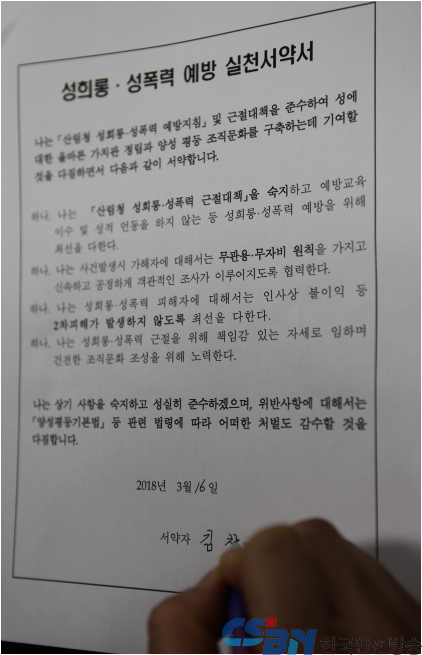 성희롱·성폭력 예방 실천서약서
나는「산림청 성희롱·성폭력 예방지침」및 근절대책을 준수하여 성에
대한 올바른 가치관 정립과 양성 평등 조직문화를 구축하는데 기여할
것을 다짐하면서 다음과 같이 서약합니다.
하나. 나는 「산림청 성희롱·성폭력 근절대책」을 숙지하고 예방교육
이수 및 성적 언동을 하지 않는 등 성희롱·성폭력 예방을 위해
최선을 다한다.
하나. 나는 사건발생시 가해자에 대해서는 무관용·무자비 원칙을 가지고
신속하고 공정하게 객관적인 조사가 이루어지도록 협력한다.
하나. 나는 성희롱·성폭력 피해자에 대해서는 인사상 불이익 등
2차피해가 발생하지 않도록 최선을 다한다.
하나. 나는 성희롱·성폭력 근절을 위해 책임감 있는 자세로 임하며
건전한 조직문화 조성을 위해 노력한다.
나는 상기 사항을 숙지하고 성실히 준수하겠으며, 위반사항에 대해서는
「양성평등기본법」등 관련 법령에 따라 어떠한 처벌도 감수할 것을
다짐합니다.
2018년 3월 16일
서약자 김
CSBN 한국안전방송